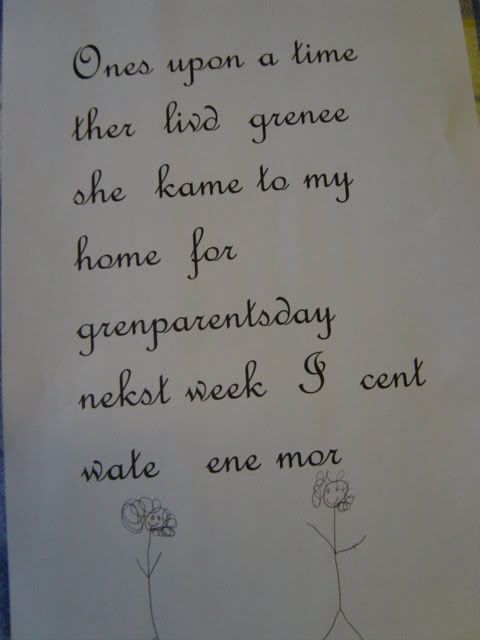 Ones upon a time
ther livd grenee
she kame to my
home for
grenparentsday
nekst week I cent
wate ene mor